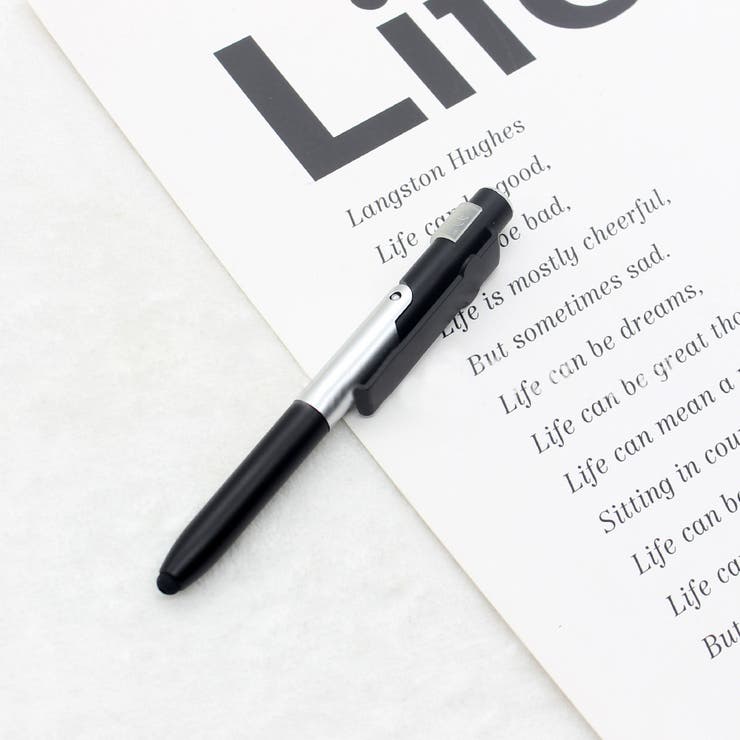 Life
Langston Hughes
Life can be good,
be bad,
Life is mostly cheerful,
But sometimes sad.
Life can be dreams,
Life can be great
Life can mean a
Sitting in
Life can be
Life
But